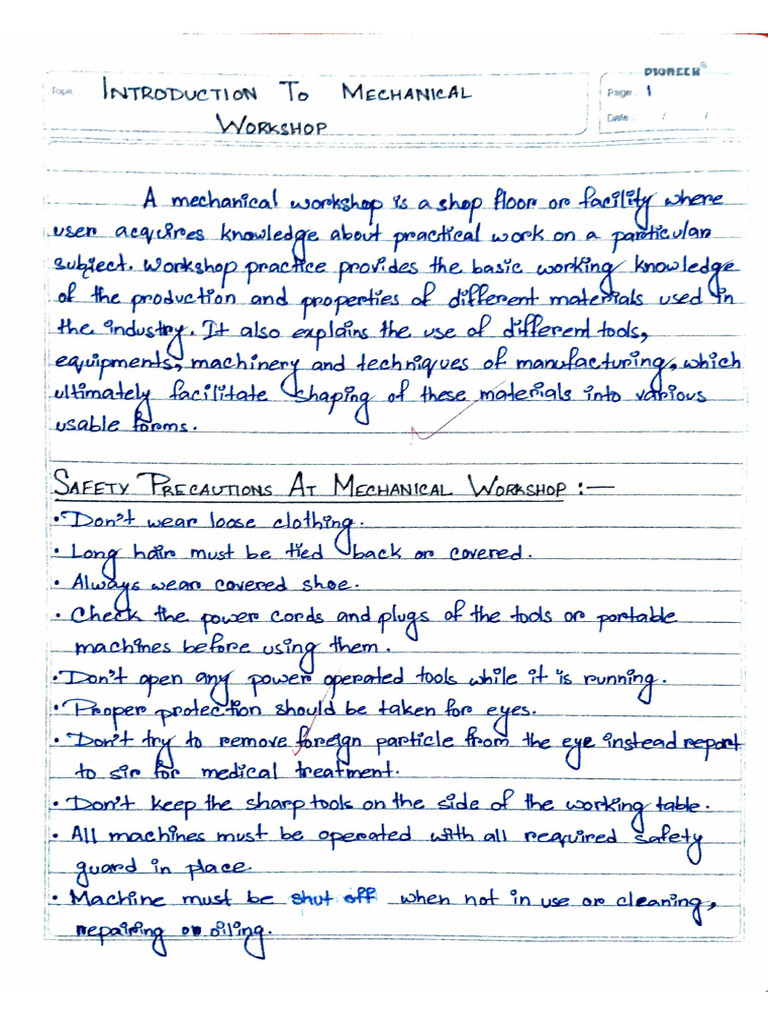 PIONEER®
Topic INTRODUCTION TO MECHANICAL
Page: 1
WORKSHOP
Date: / /
A mechanical workshop is a shop floor or facility where
user acquires knowledge about practical work on a particular
subject. Workshop practice provides the basic working knowledge
of the production and properties of different materials used in
the industry. It also explains the use of different tools,
equipments, machinery and techniques of manufacturing, which
ultimately facilitate shaping of these materials into various
usable forms.
SAFETY PRECAUTIONS AT MECHANICAL WORKSHOP :—
• Don't wear loose clothing.
• Long hair must be tied back or covered.
• Always wear covered shoe.
• Check the power cords and plugs of the tools or portable
machines before using them.
• Don't open any power operated tools while it is running.
• Proper protection should be taken for eyes.
• Don't try to remove foreign particle from the eye instead report
to sir for medical treatment.
• Don't keep the sharp tools on the side of the working table.
• All machines must be operated with all required safety
guard in place
• Machine must be shut off when not in use or cleaning,
repairing or oiling.